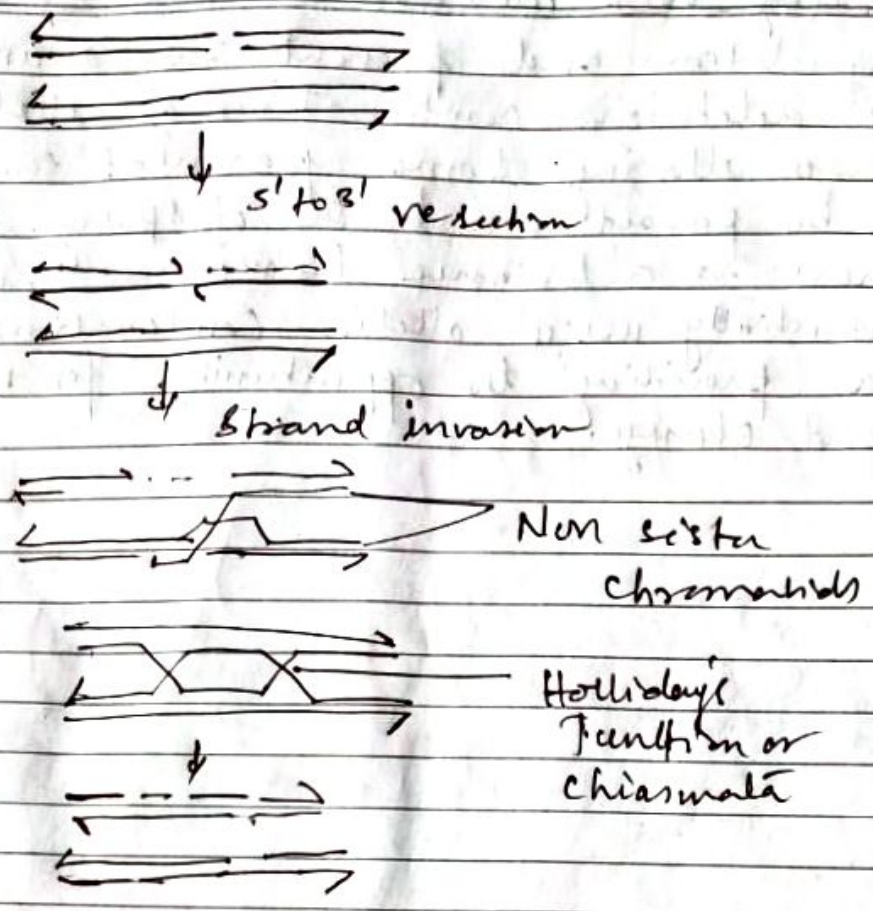 5' to 3' resection
Strand invasion
Non sister
Chromatids
Holliday's
Junction or
Chiasmata